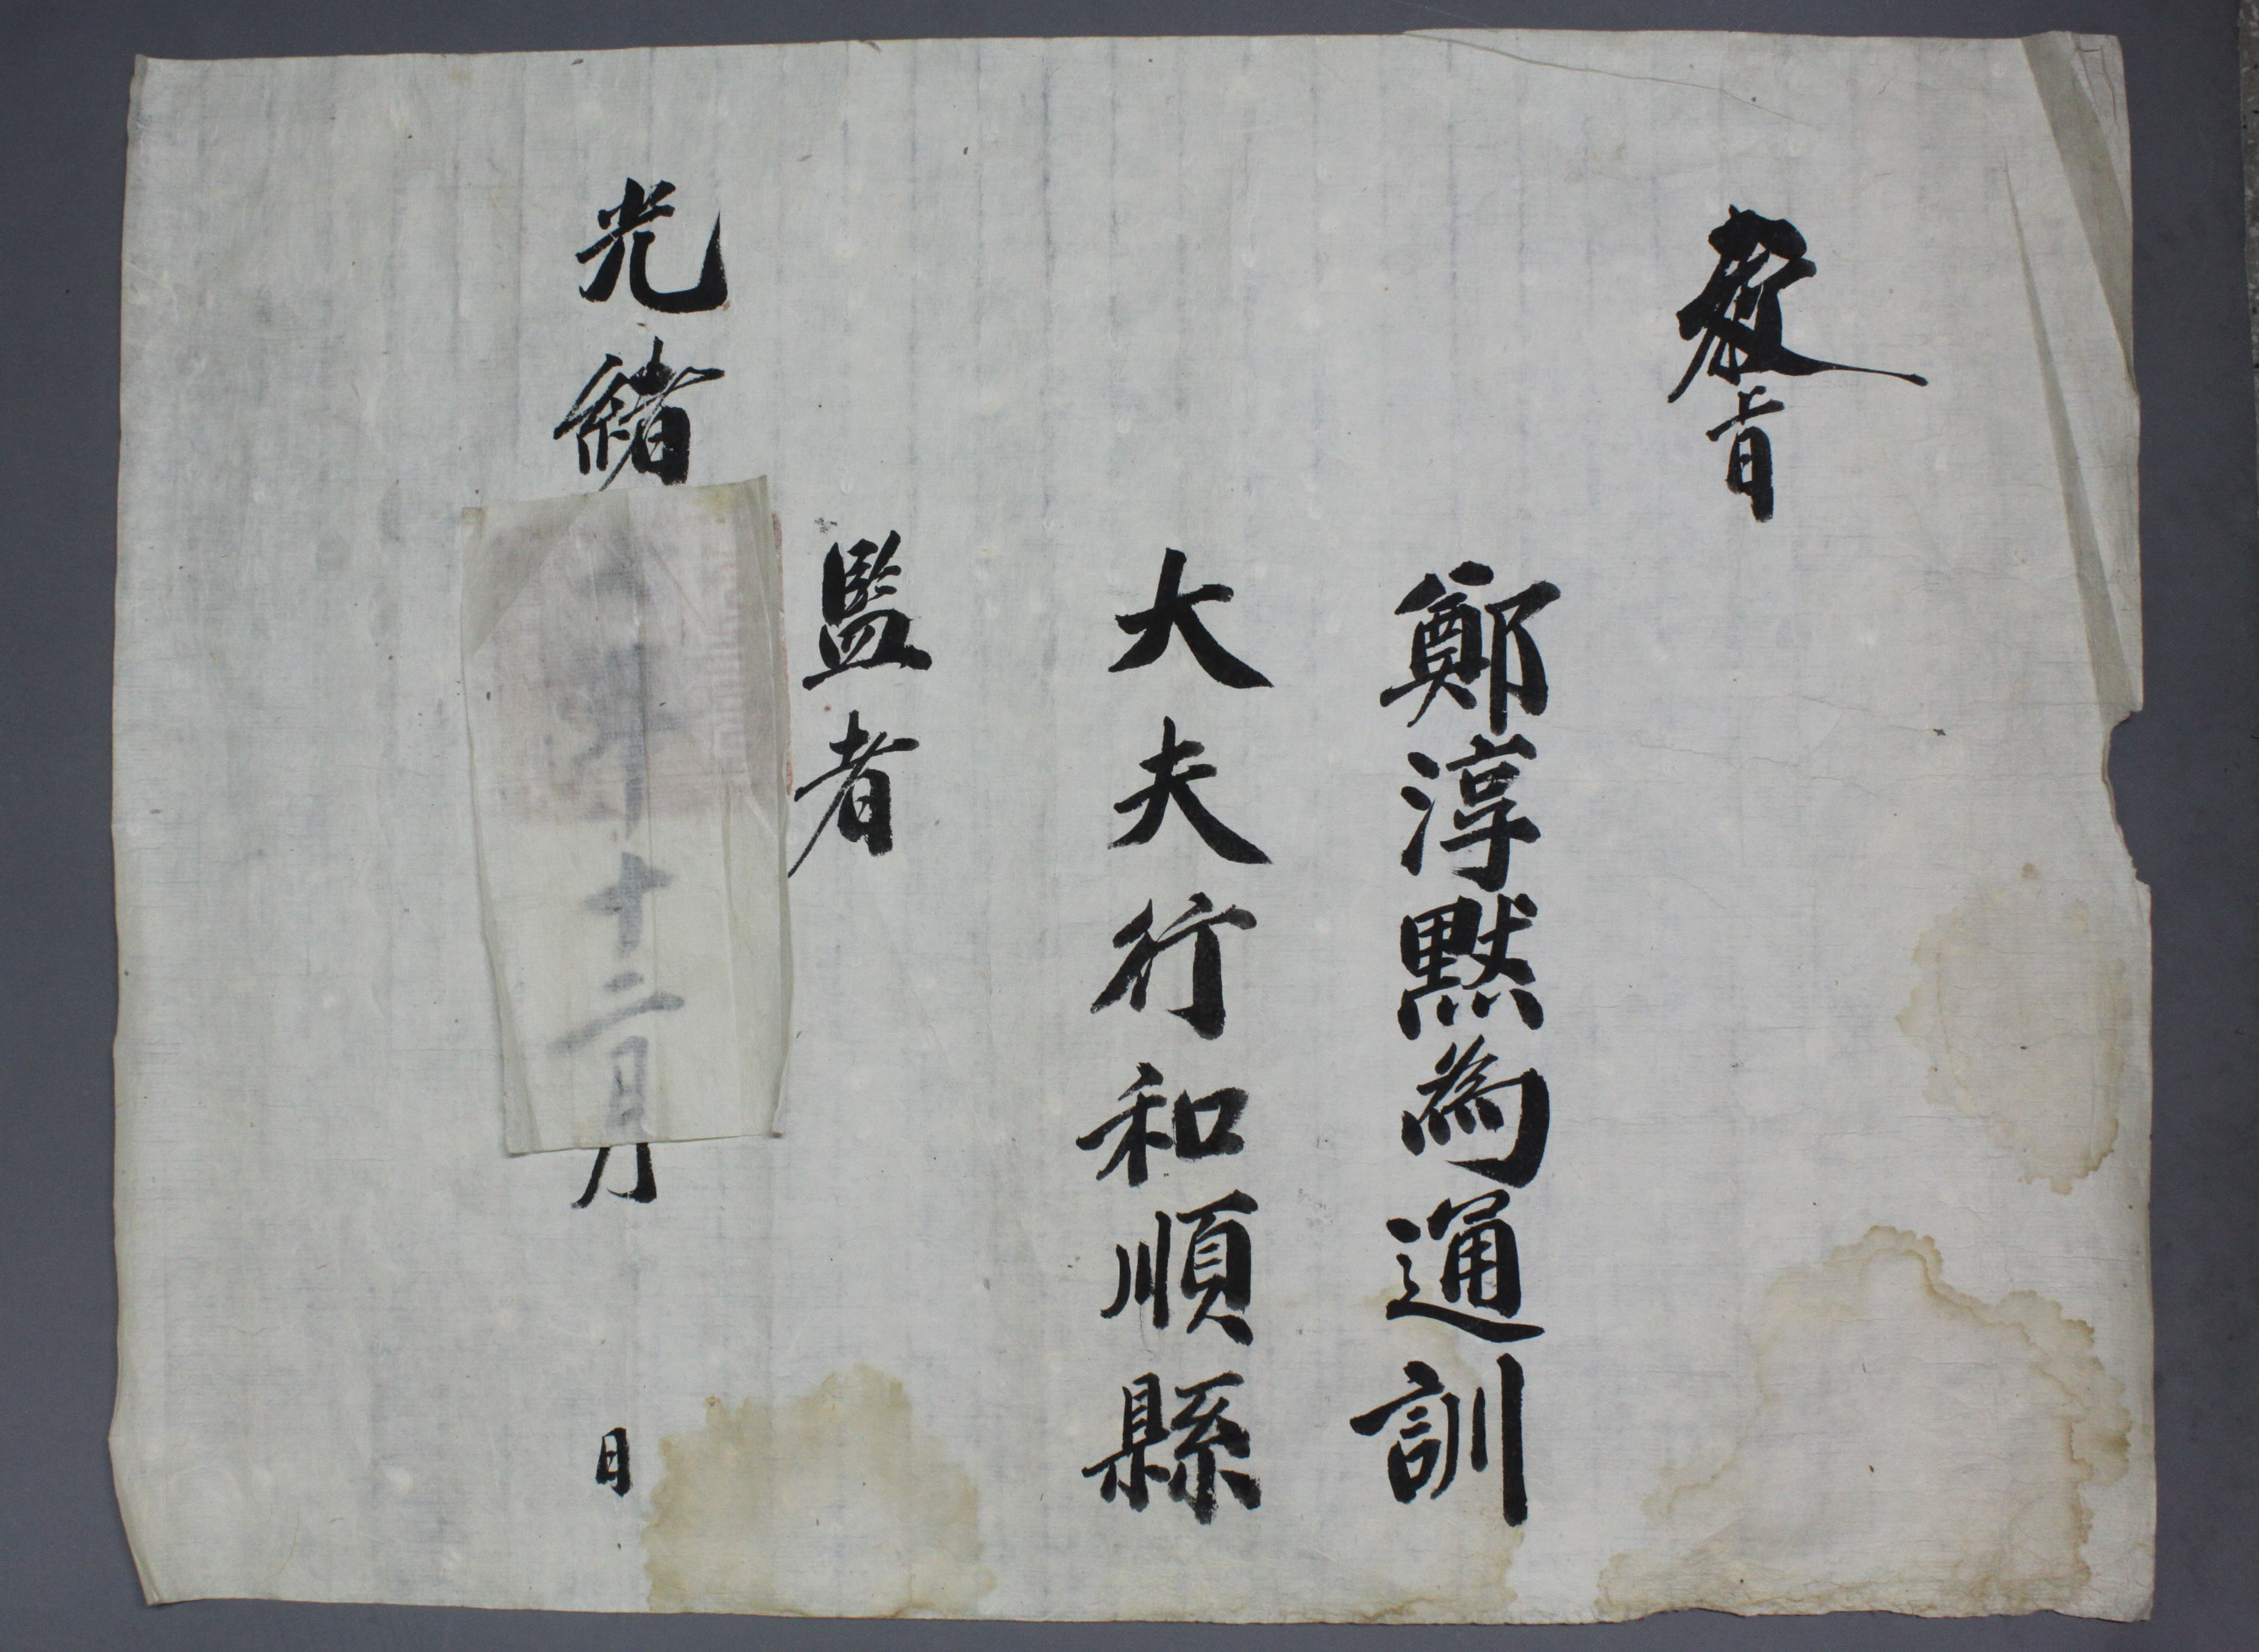 敎旨
鄭淳默爲通訓
大夫行和順縣
監者
光緖 年十二月 日